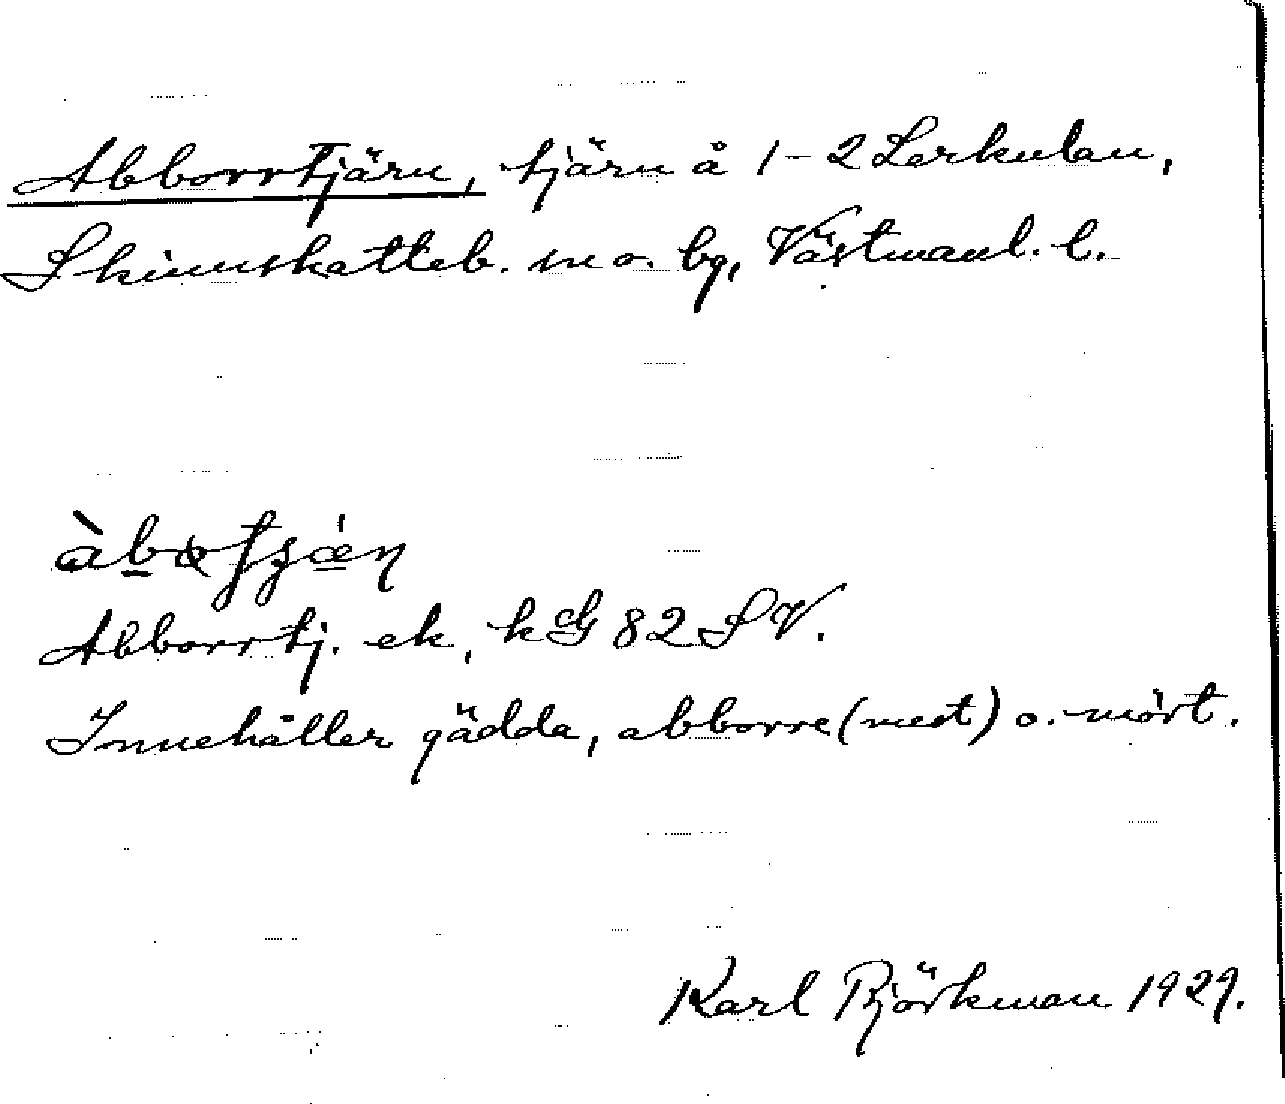 Abborrtjärn, tjärn å 1-2 Lerkulan,
Skinnskatteb. sn o. bg, Västmanl. l.
Abborrtj. ek, kG 82 SV.
Innehåller gädda, abborre (mest) o. mört.
Karl Björkman 1929.